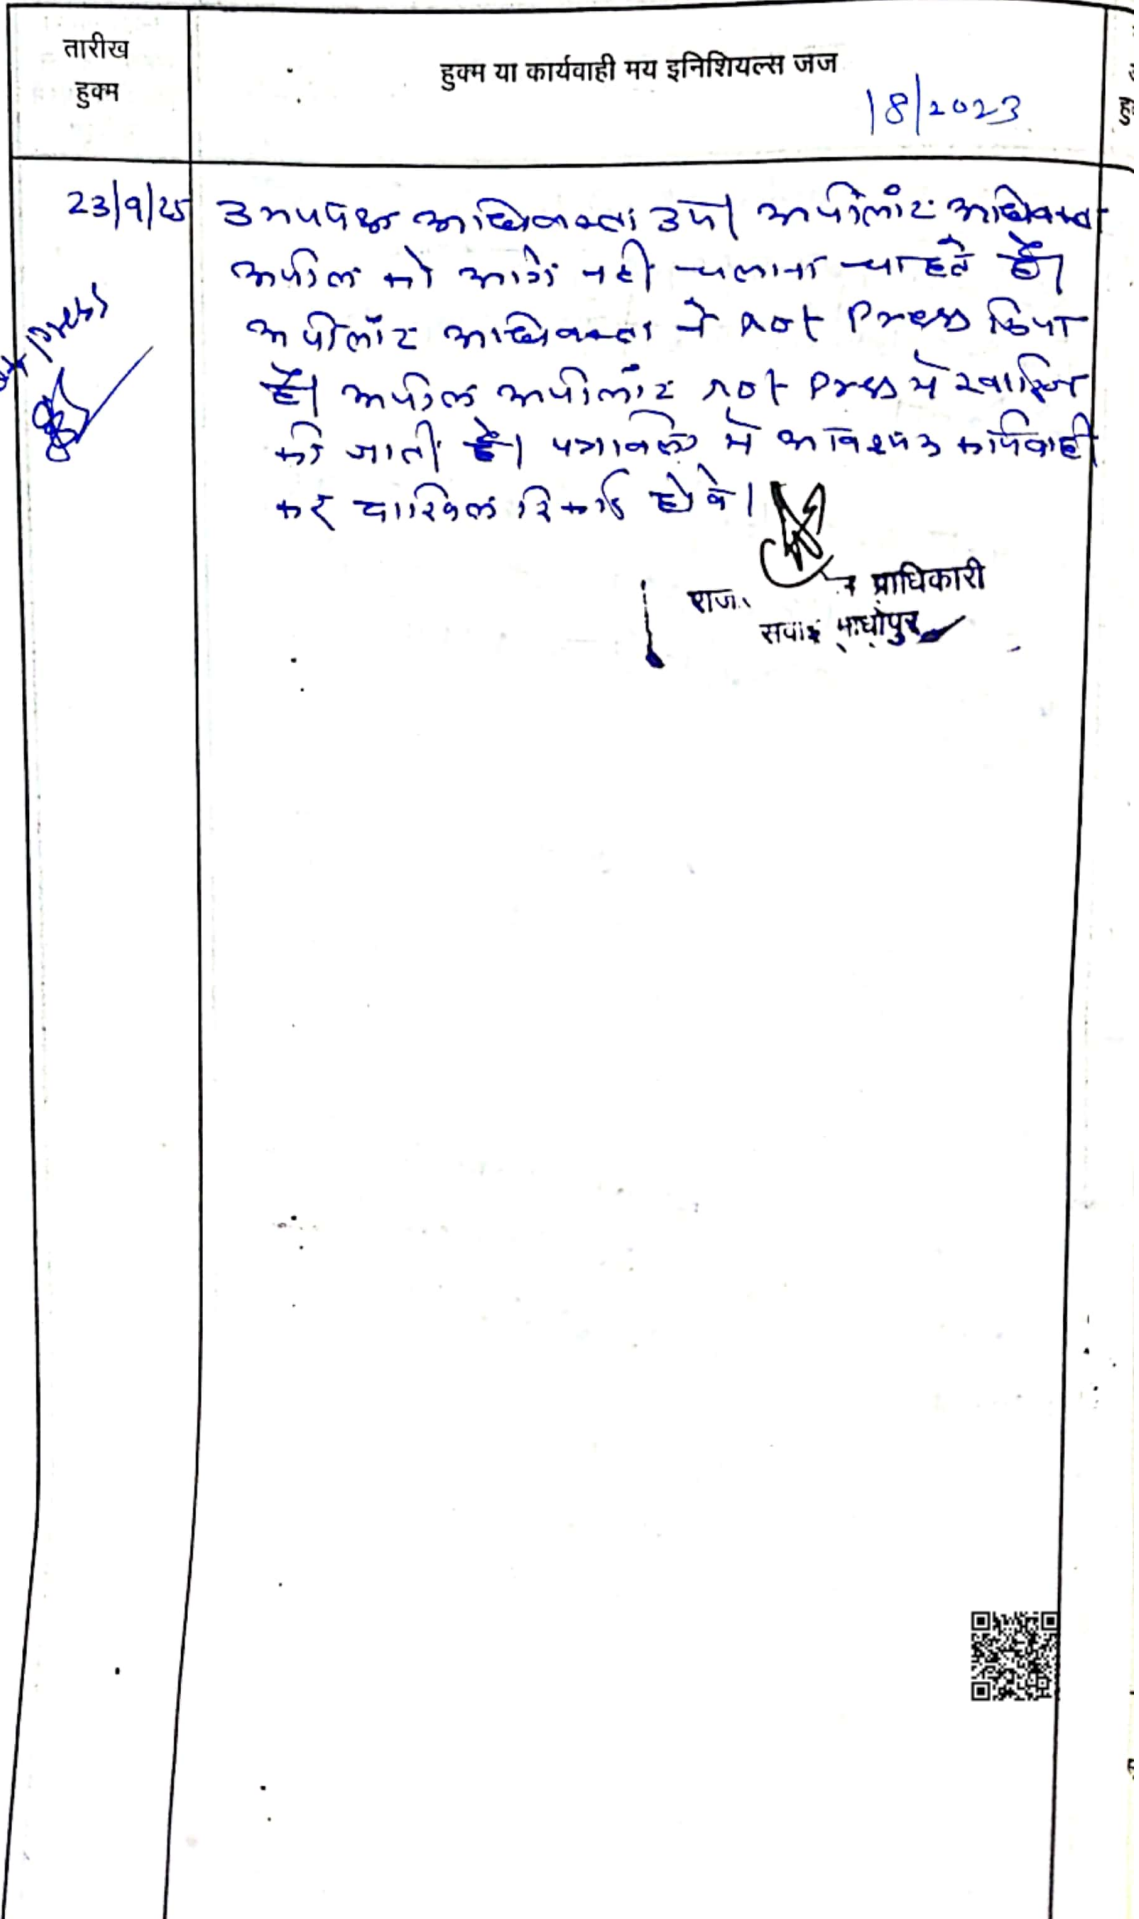 तारीख
हुक्म
हुक्म या कार्यवाही मय इनिशियल्स जज
18/2023
23/9/25
उभयपक्ष अधिवक्ता उप। अपीलांट अधिवक्ता
अपील को आगे नही चलाना चाहते है।
अपीलांट अधिवक्ता ने not Press किया
है। अपील अपीलांट not Press मे खारिज
की जाती है। पत्रावली मे आवश्यक कार्यवाही
कर दाखिल रिकार्ड होवे।
press
राज. प्राधिकारी
सवाई माधोपुर